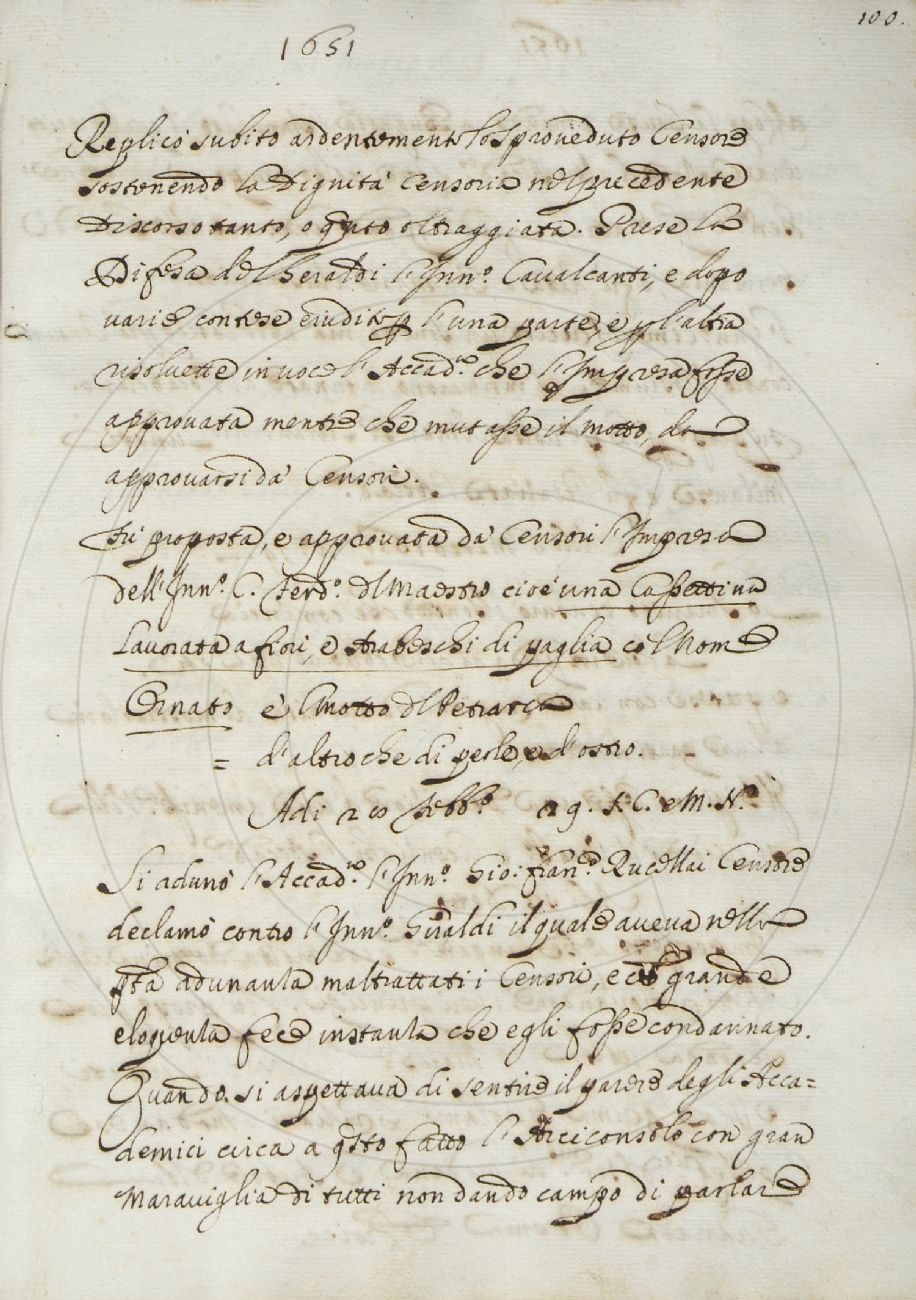 100.
1651
Replicò subito ardentemente lo Sproveduto Censore
sostenendo la Dignità Censoria nel precedente
Discorso tanto, o quanto oltraggiata. Prese la
Difesa del Sheraldi l'Inn.º Cavalcanti, e dopo
varie contese erudite p l'una parte, e p l'altra
risolvette in voce l'Accad.ia che l'Impresa fosse
approvata mentre che mutasse il motto, da
approvarsi da' Censori.
Fù proposta, e approvata da' Censori l'Impresa
dell'Inn.º C. Ferd.º del Maestro cioè una Cassettina
Lavorata a fiori, e Arabeschi di paglia col Nome
Ornato è l'motto del Petrarca
= d'altro che di perle, e d'ostro.
Adi 20 Febb.º 29. S.C. e M.N.º
Si adunò l'Accad.ia l'Inn.º Gio: Fran.º Rucellai Censore
declamò contro l'Inn.º Giraldi il quale aveva nella
psta adunanza maltrattati i Censori, e con grande
eloquenza fece instanza che egli fosse condannato.
Quando si aspettava di sentire il parere degli Acca=
demici circa a qsto fatto l'Arciconsolo con gran
Maraviglia di tutti non dando campo di parlare